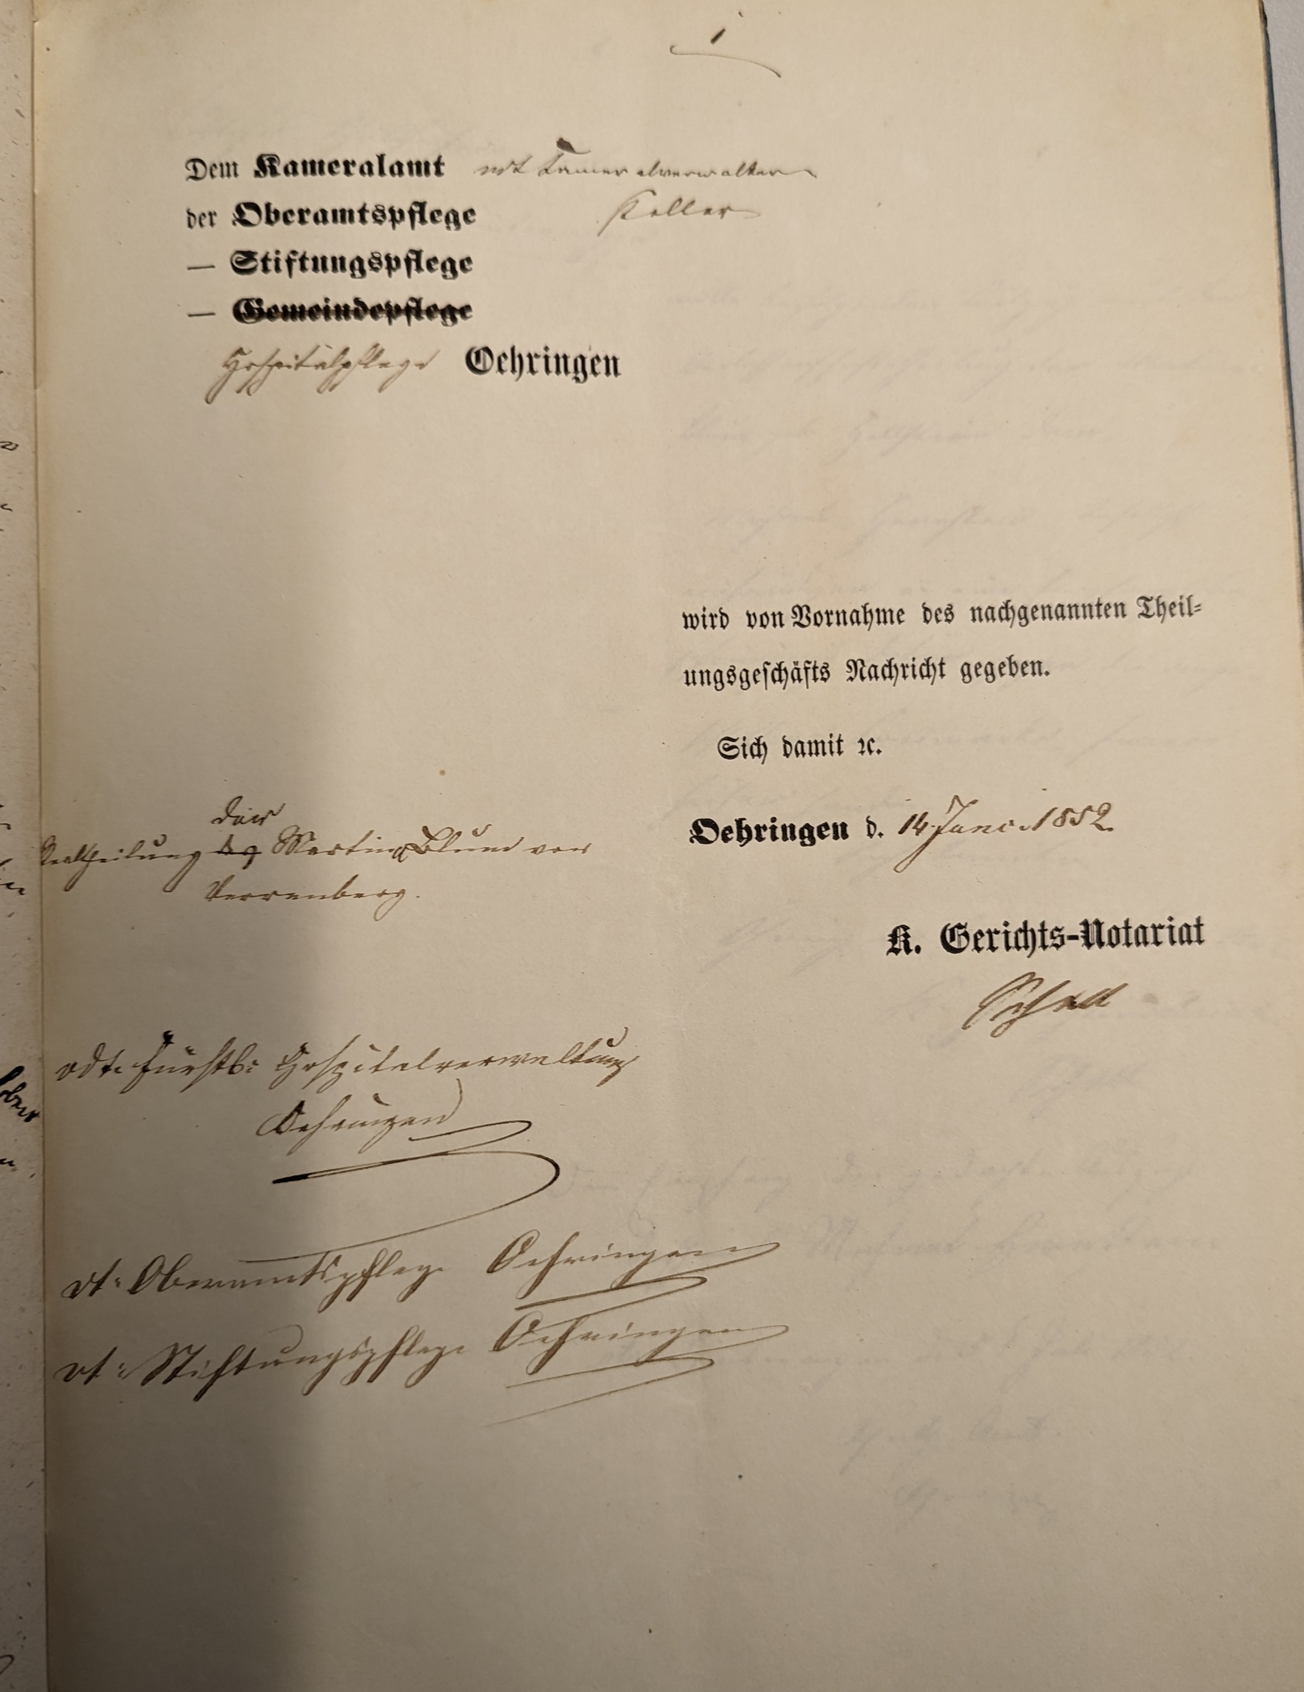 1
Dem Kameralamt vdt Kameralverwalter
der Oberamtspflege Keller
— Stiftungspflege
— Gemeindepflege
Hospitalpflege Oehringen
wird von Vornahme des nachgenannten Theil-
ungsgeschäfts Nachricht gegeben.
Sich damit ꝛc.
Oehringen d. 14. Juni 1852.
K. Gerichts-Notariat
Schall
Realtheilung Martin Blum von
Verrenberg.
vdt. Fürstl: Hospitalverwaltung
Oehringen
vt: Oberamtspflege Oehringen
vt: Stiftungspflege Oehringen